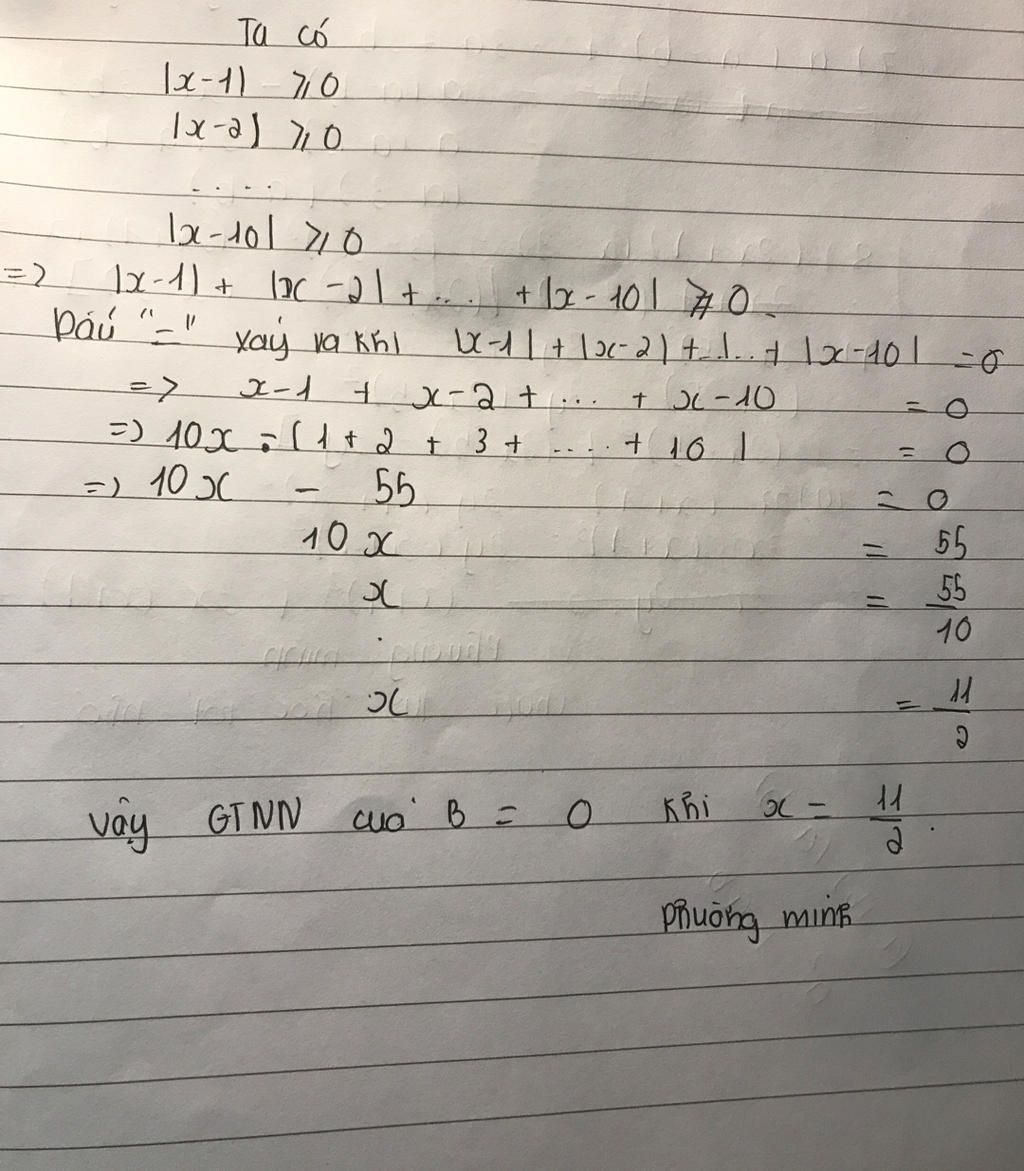 Ta có
|x-1| ⩾ 0
|x-2| ⩾ 0
.....
|x-10| ⩾ 0
=> |x-1| + |x-2| + ... + |x-10| ⩾ 0.
Dấu "=" xảy ra khi |x-1| + |x-2| + ... + |x-10| = 0
=> x-1 + x-2 + ... + x-10 = 0
=> 10x - (1 + 2 + 3 + .... + 10) = 0
=> 10x - 55 = 0
10x = 55
x = 55/10
x = 11/2
Vậy GTNN của B = 0 khi x = 11/2.
Phương minh